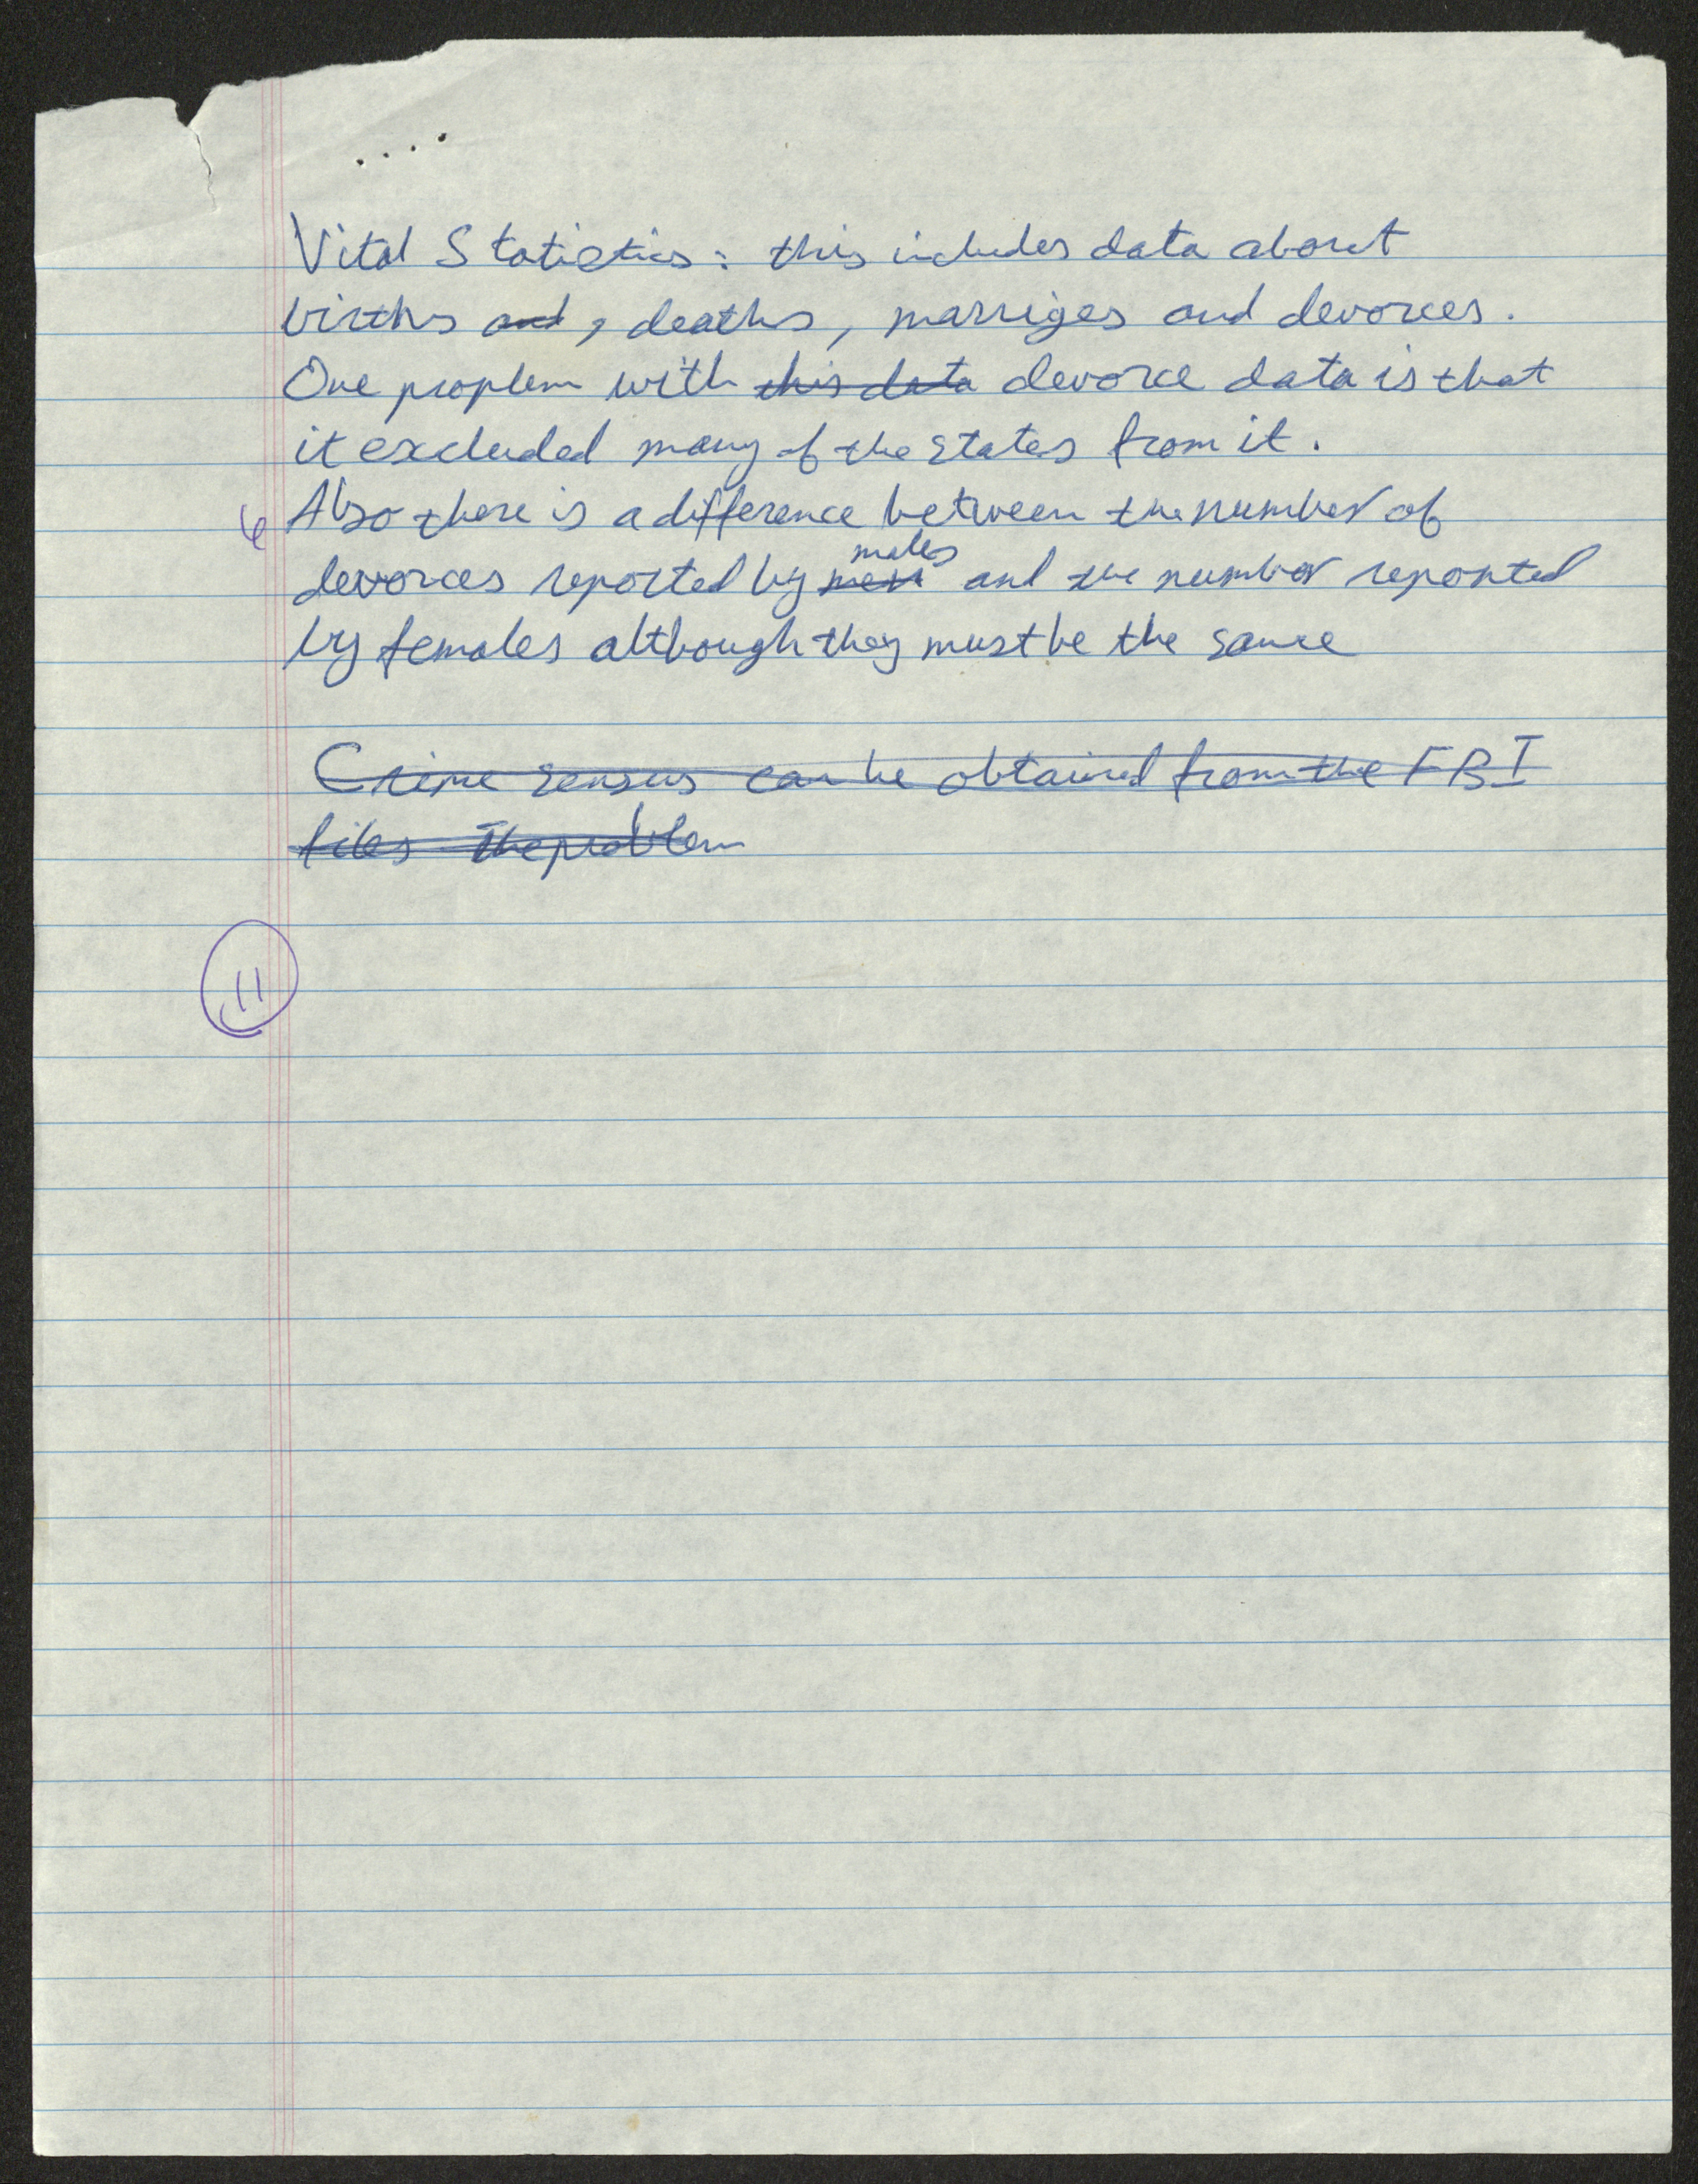 Vital Statistics: this includes data about
births and, deaths, marriges and devorces.
One proplem with this data devorce data is that
it excluded many of the states from it.
6 Also there is a difference between the number of
males
devorces reported by men and the number reported
by females although they must be the same
Crime sensus can be obtained from the FBI
files The problem
11